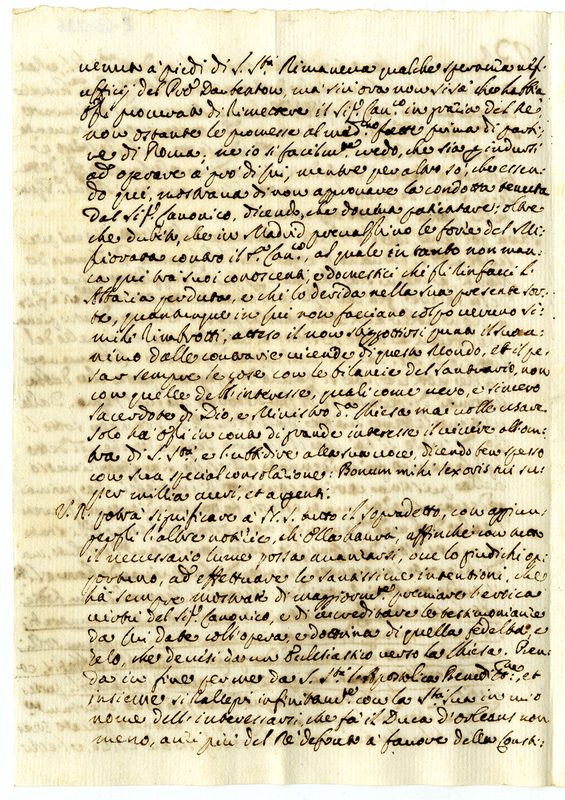 venuto a piedi di S. Stà. Rimaneva qualche speranza negl'
ufficij del Prē Daubenton, ma sin ora non si sà che habbia
egli procurato di rimettere il Sig.r Can.co in grazia del Re
non ostante le promesse al med.mo fatte prima di parti:
re di Roma, ne io sì facilm.te credo, che siasi indursi
ad operare a prò di lui, mentre per altro sò, che essen:
do qui, mostrava di non approvare la condotta tenuta
dal Sig.r Canonico, dicendo, che doveva pazientare; oltre
che dubito, che in Madrid prevaglino le forze del
contro il S.r Can.co, al quale in tanto non man:
ca qui tra suoi conoscenti, e domestici chi gli rinfacci l'
Abbazia perduta, e chi lo derida nella sua presente sor:
te, quantunque in lui non facciano colpo veruno si:
mili rimbrotti, atteso il non sbigottirsi punto il suo a:
nimo dalle contrarie vicende di questo Mondo, et il pe:
sar sempre le cose con le bilancie del Santuario, non
con quelle dell'interesse, quali come vero, e sincero
Sacerdote di Dio, e Ministro d.a Chiesa mai volle usare
solo hà egli in conto di grande interesse il vivere all'om:
bra di S. Stà, e l'ubbidire alla sua voce, dicendo ben spesso
con sua special consolazione: Bonum mihi lex oris tui su:
per millia auri, et argenti.
V. R. potrà significare a N. S. tutto il sopradetto, con aggiun:
gergli l'altre notizie, ch'ella haverà, affinche con tutto
il necessario lume possa avanzarsi, ove lo giudichi op:
portuno, ad effettuare le santissime intentioni, che
hà sempre mostrate di maggiorm.te premiare l'eroica
virtù del Sig.r Canonico, e di accreditare le testimonianze
da lui date coll'opera, e dottrina di quella fedeltà, e
zelo, che devesi da un Ecclesiastico verso la Chiesa. Pren:
da in fine per me da S. Stà l'Apostolica Benedit.ne, et
insieme si rallegri infinitam.te con la Stà Sua in mio
nome dell'interessarsi, che fà il Duca d'Orleans non
meno, anzi più del Rè defonto a favore della Consti: